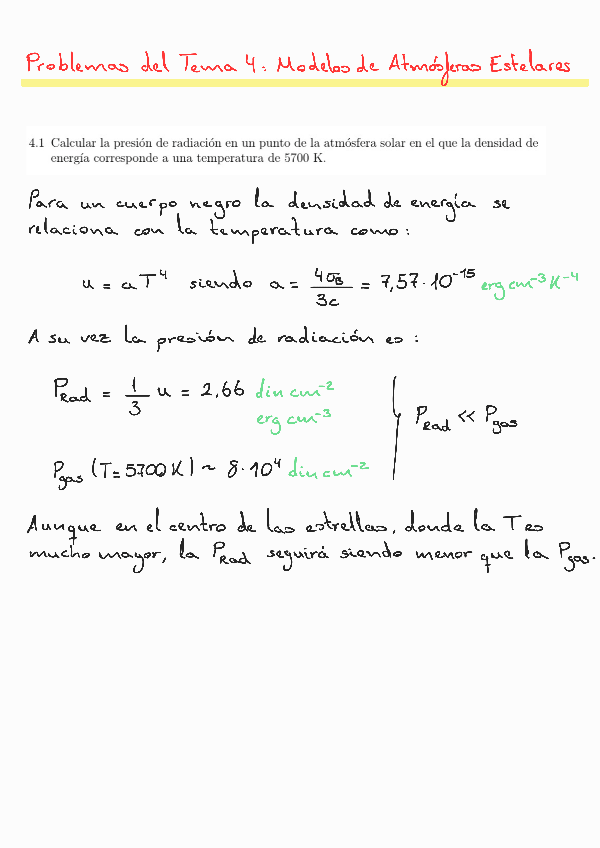 Problemas del Tema 4: Modelos de Atmósferas Estelares
4.1 Calcular la presión de radiación en un punto de la atmósfera solar en el que la densidad de
energía corresponde a una temperatura de 5700 K.
Para un cuerpo negro la densidad de energía se
relaciona con la temperatura como:
u = aT⁴ siendo a = 4σ_B / 3c = 7,57·10⁻¹⁵ erg cm⁻³ K⁻⁴
A su vez la presión de radiación es:
P_Rad = 1/3 u = 2,66 din cm⁻²
erg cm⁻³
P_Rad << P_gas
P_gas (T=5700 K) ~ 8·10⁴ din cm⁻²
Aunque en el centro de las estrellas, donde la T es
mucho mayor, la P_Rad seguirá siendo menor que la P_gas.